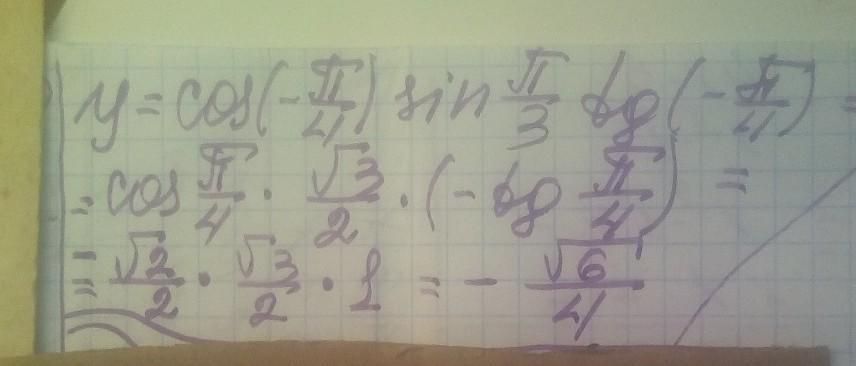 y = cos(-π/4) sin π/3 tg(-π/4) =
= cos π/4 · √3/2 · (- tg π/4) =
= -√2/2 · √3/2 · 1 = - √6/4